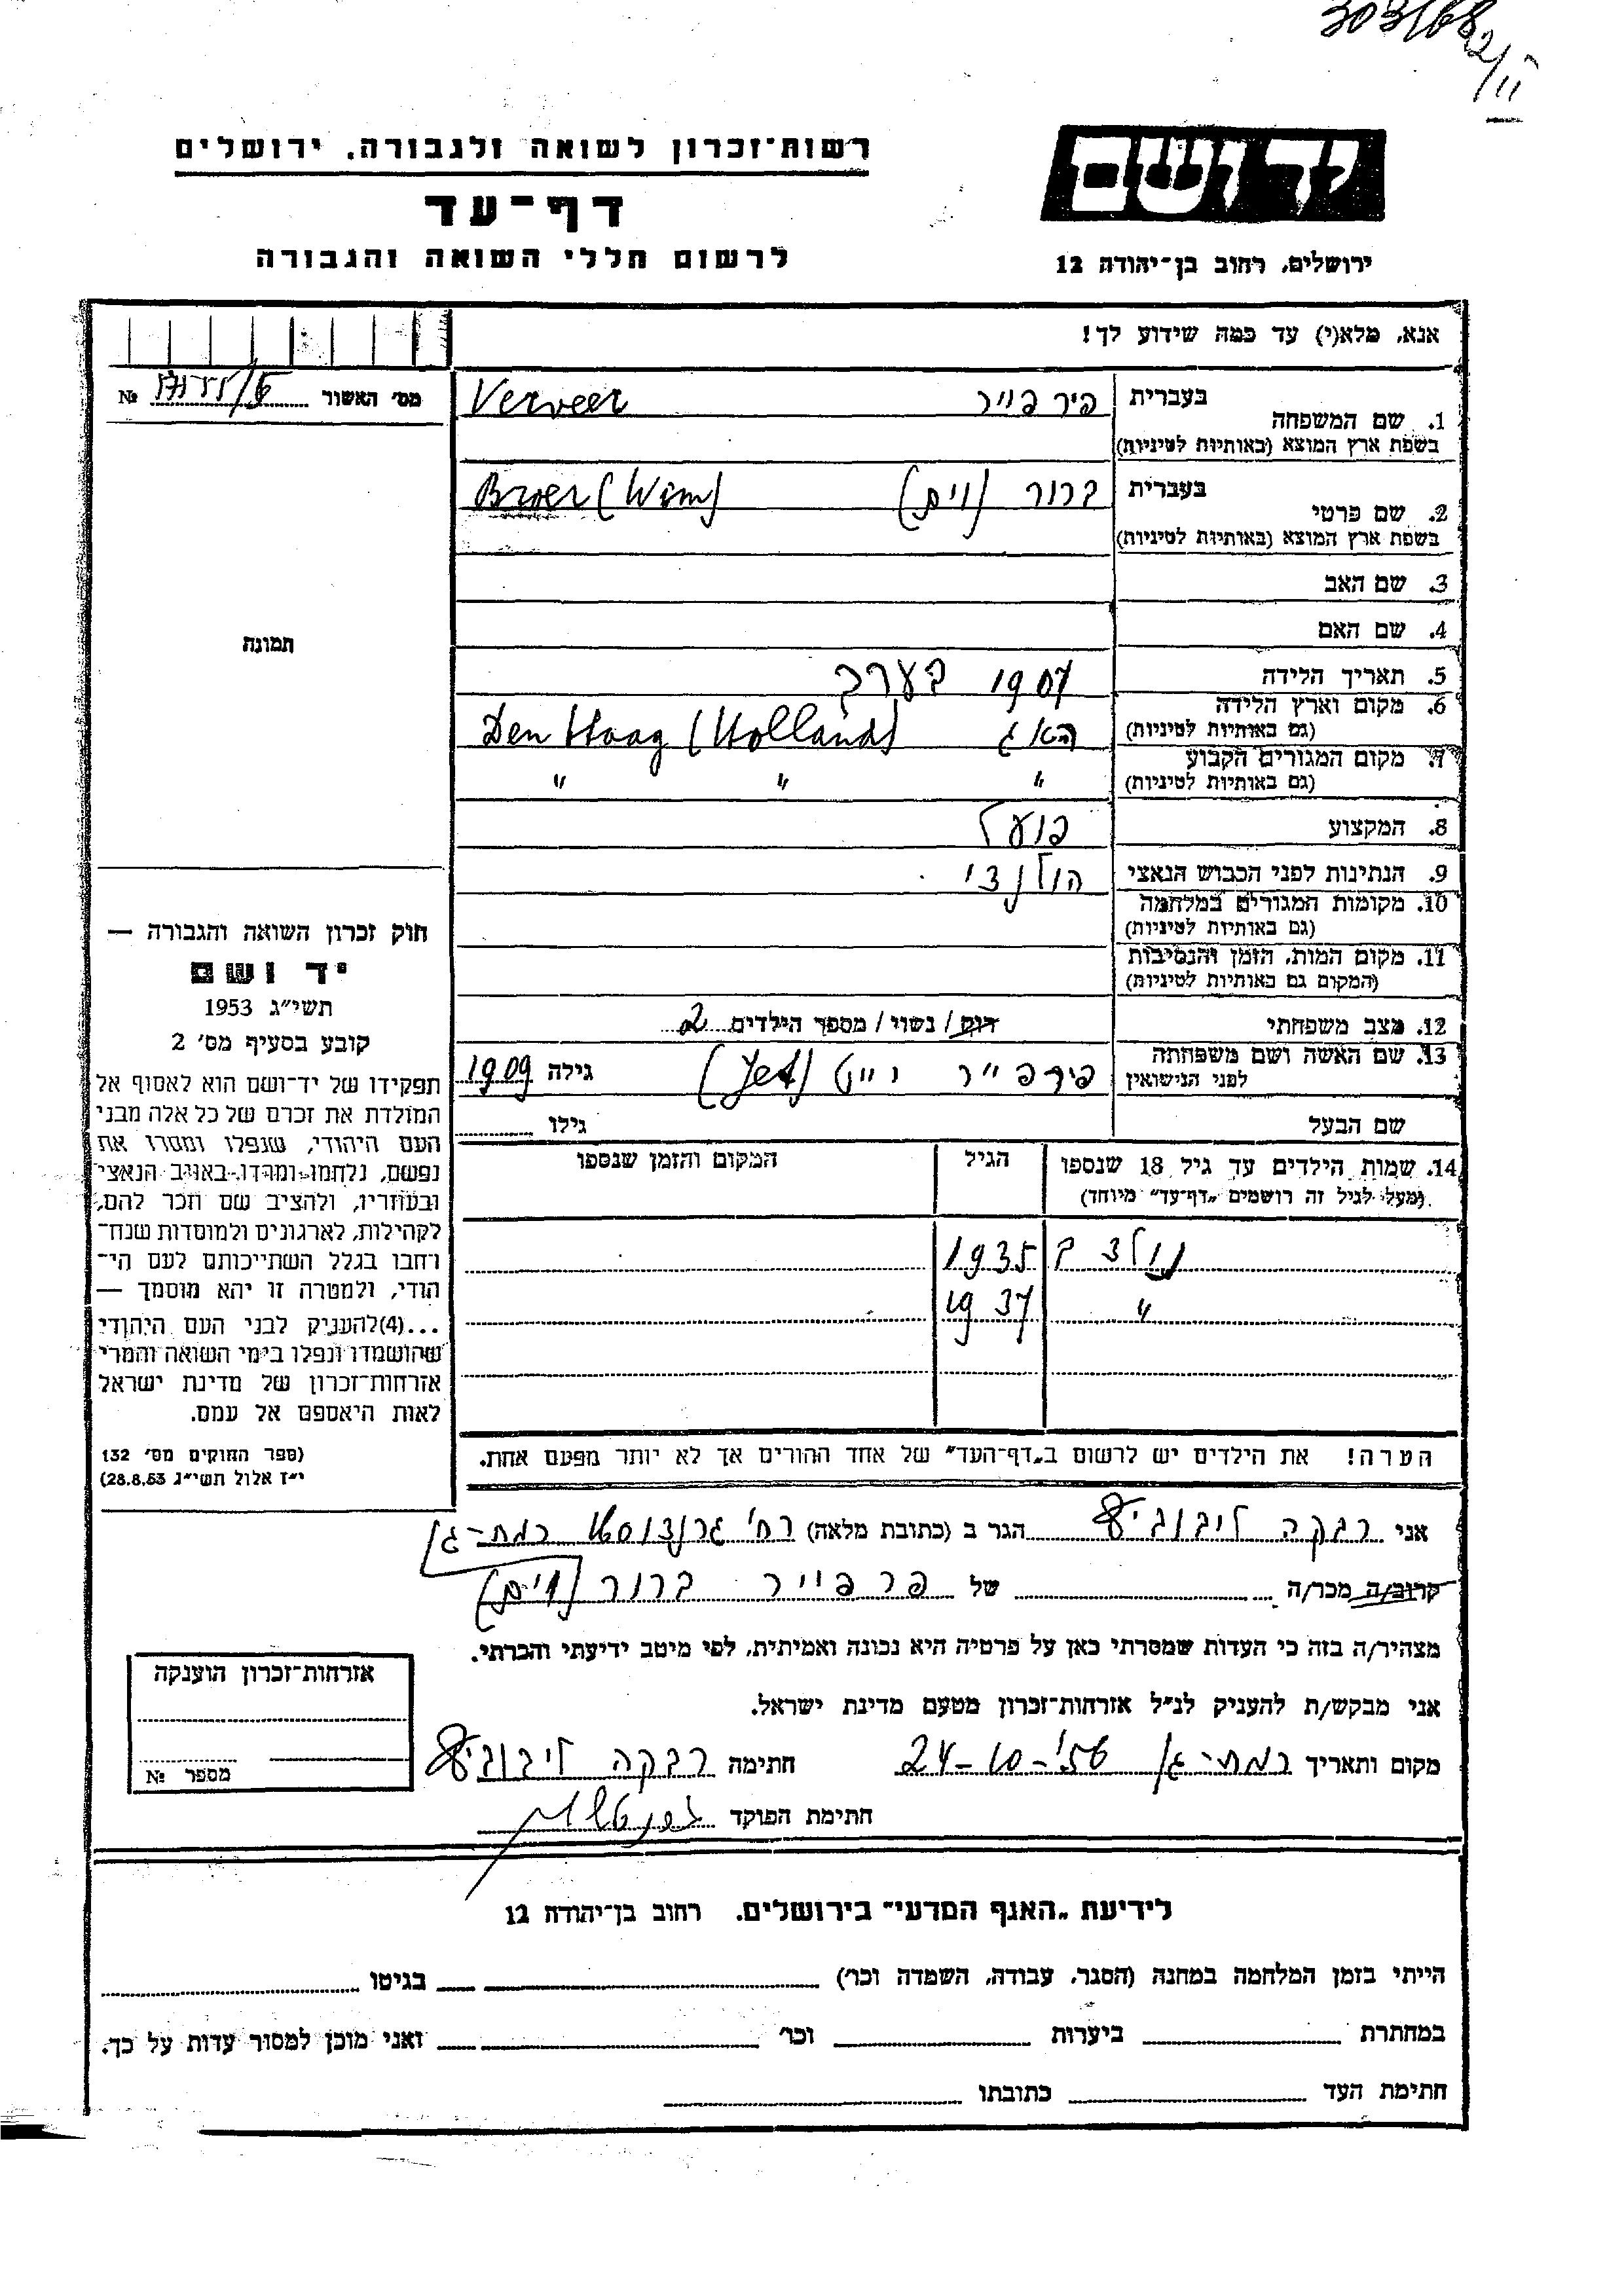 303/68
2/II
יד ושם
רשות־זכרון לשואה ולגבורה, ירושלים
דף־עד
לרשום חללי השואה והגבורה
ירושלים, רחוב בן־יהודה 12
אנא, מלא(י) עד כמה שידוע לך!
מס׳ האשור № 
1. שם המשפחה
בעברית פיר פייר Verveer
בשפת ארץ המוצא (באותיות לטיניות)
2. שם פרטי
בעברית ברור (וים) Broer (Wim)
בשפת ארץ המוצא (באותיות לטיניות)
3. שם האב
4. שם האם
תמונה
5. תאריך הלידה 1907 בערך
6. מקום וארץ הלידה
(גם באותיות לטיניות) האג Den Haag (Holland)
7. מקום המגורים הקבוע
(גם באותיות לטיניות) " " "
8. המקצוע פועל
9. הנתינות לפני הכבוש הנאצי הולנדי
10. מקומות המגורים במלחמה
(גם באותיות לטיניות)
11. מקום המות, הזמן והנסיבות
(המקום גם באותיות לטיניות)
12. מצב משפחתי רוק / נשוי / מספר הילדים 2
13. שם האשה ושם משפחתה
לפני הנישואין פירפייר ייט (Jet) גילה 1909
שם הבעל גילו
14. שמות הילדים עד גיל 18 שנספו הגיל המקום והזמן שנספו
(מעל לגיל זה רושמים „דף־עד" מיוחד)
נולד ב 1935
" 1937
הערה! את הילדים יש לרשום ב„דף־העד" של אחד ההורים אך לא יותר מפעם אחת.
חוק זכרון השואה והגבורה —
יד ושם
תשי״ג 1953
קובע בסעיף מס׳ 2
תפקידו של יד־ושם הוא לאסוף אל
המולדת את זכרם של כל אלה מבני
העם היהודי, שנפלו ומסרו את
נפשם, נלחמו ומרדו באויב הנאצי
ובעוזריו, ולהציב שם וזכר להם,
לקהילות, לארגונים ולמוסדות שנח־
רחבו בגלל השתייכותם לעם הי־
הודי, ולמטרה זו יהא מוסמך —
...(4)להעניק לבני העם היהודי
שהושמדו ונפלו בימי השואה והמרי
אזרחות־זכרון של מדינת ישראל
לאות היאספם אל עמם.
(ספר החוקים מס׳ 132
י״ז אלול תשי״ג 28.8.53)
אני רבקה הגר ב (כתובת מלאה) רח׳ רמת-גן
קרוב/ה מכר/ה של פרפייר ברור (וים)
מצהיר/ה בזה כי העדות שמסרתי כאן על פרטיה היא נכונה ואמיתית, לפי מיטב ידיעתי והכרתי.
אני מבקש/ת להעניק לנ״ל אזרחות־זכרון מטעם מדינת ישראל.
מקום ותאריך רמת-גן 24-10-56׳ חתימה רבקה
חתימת הפוקד
אזרחות־זכרון הוענקה
מספר №
לידיעת „האגף המדעי" בירושלים, רחוב בן־יהודה 12
הייתי בזמן המלחמה במחנה (הסגר, עבודה, השמדה וכר׳) בגיטו
במחתרת ביערות וכר׳ ואני מוכן למסור עדות על כך.
חתימת העד כתובתו